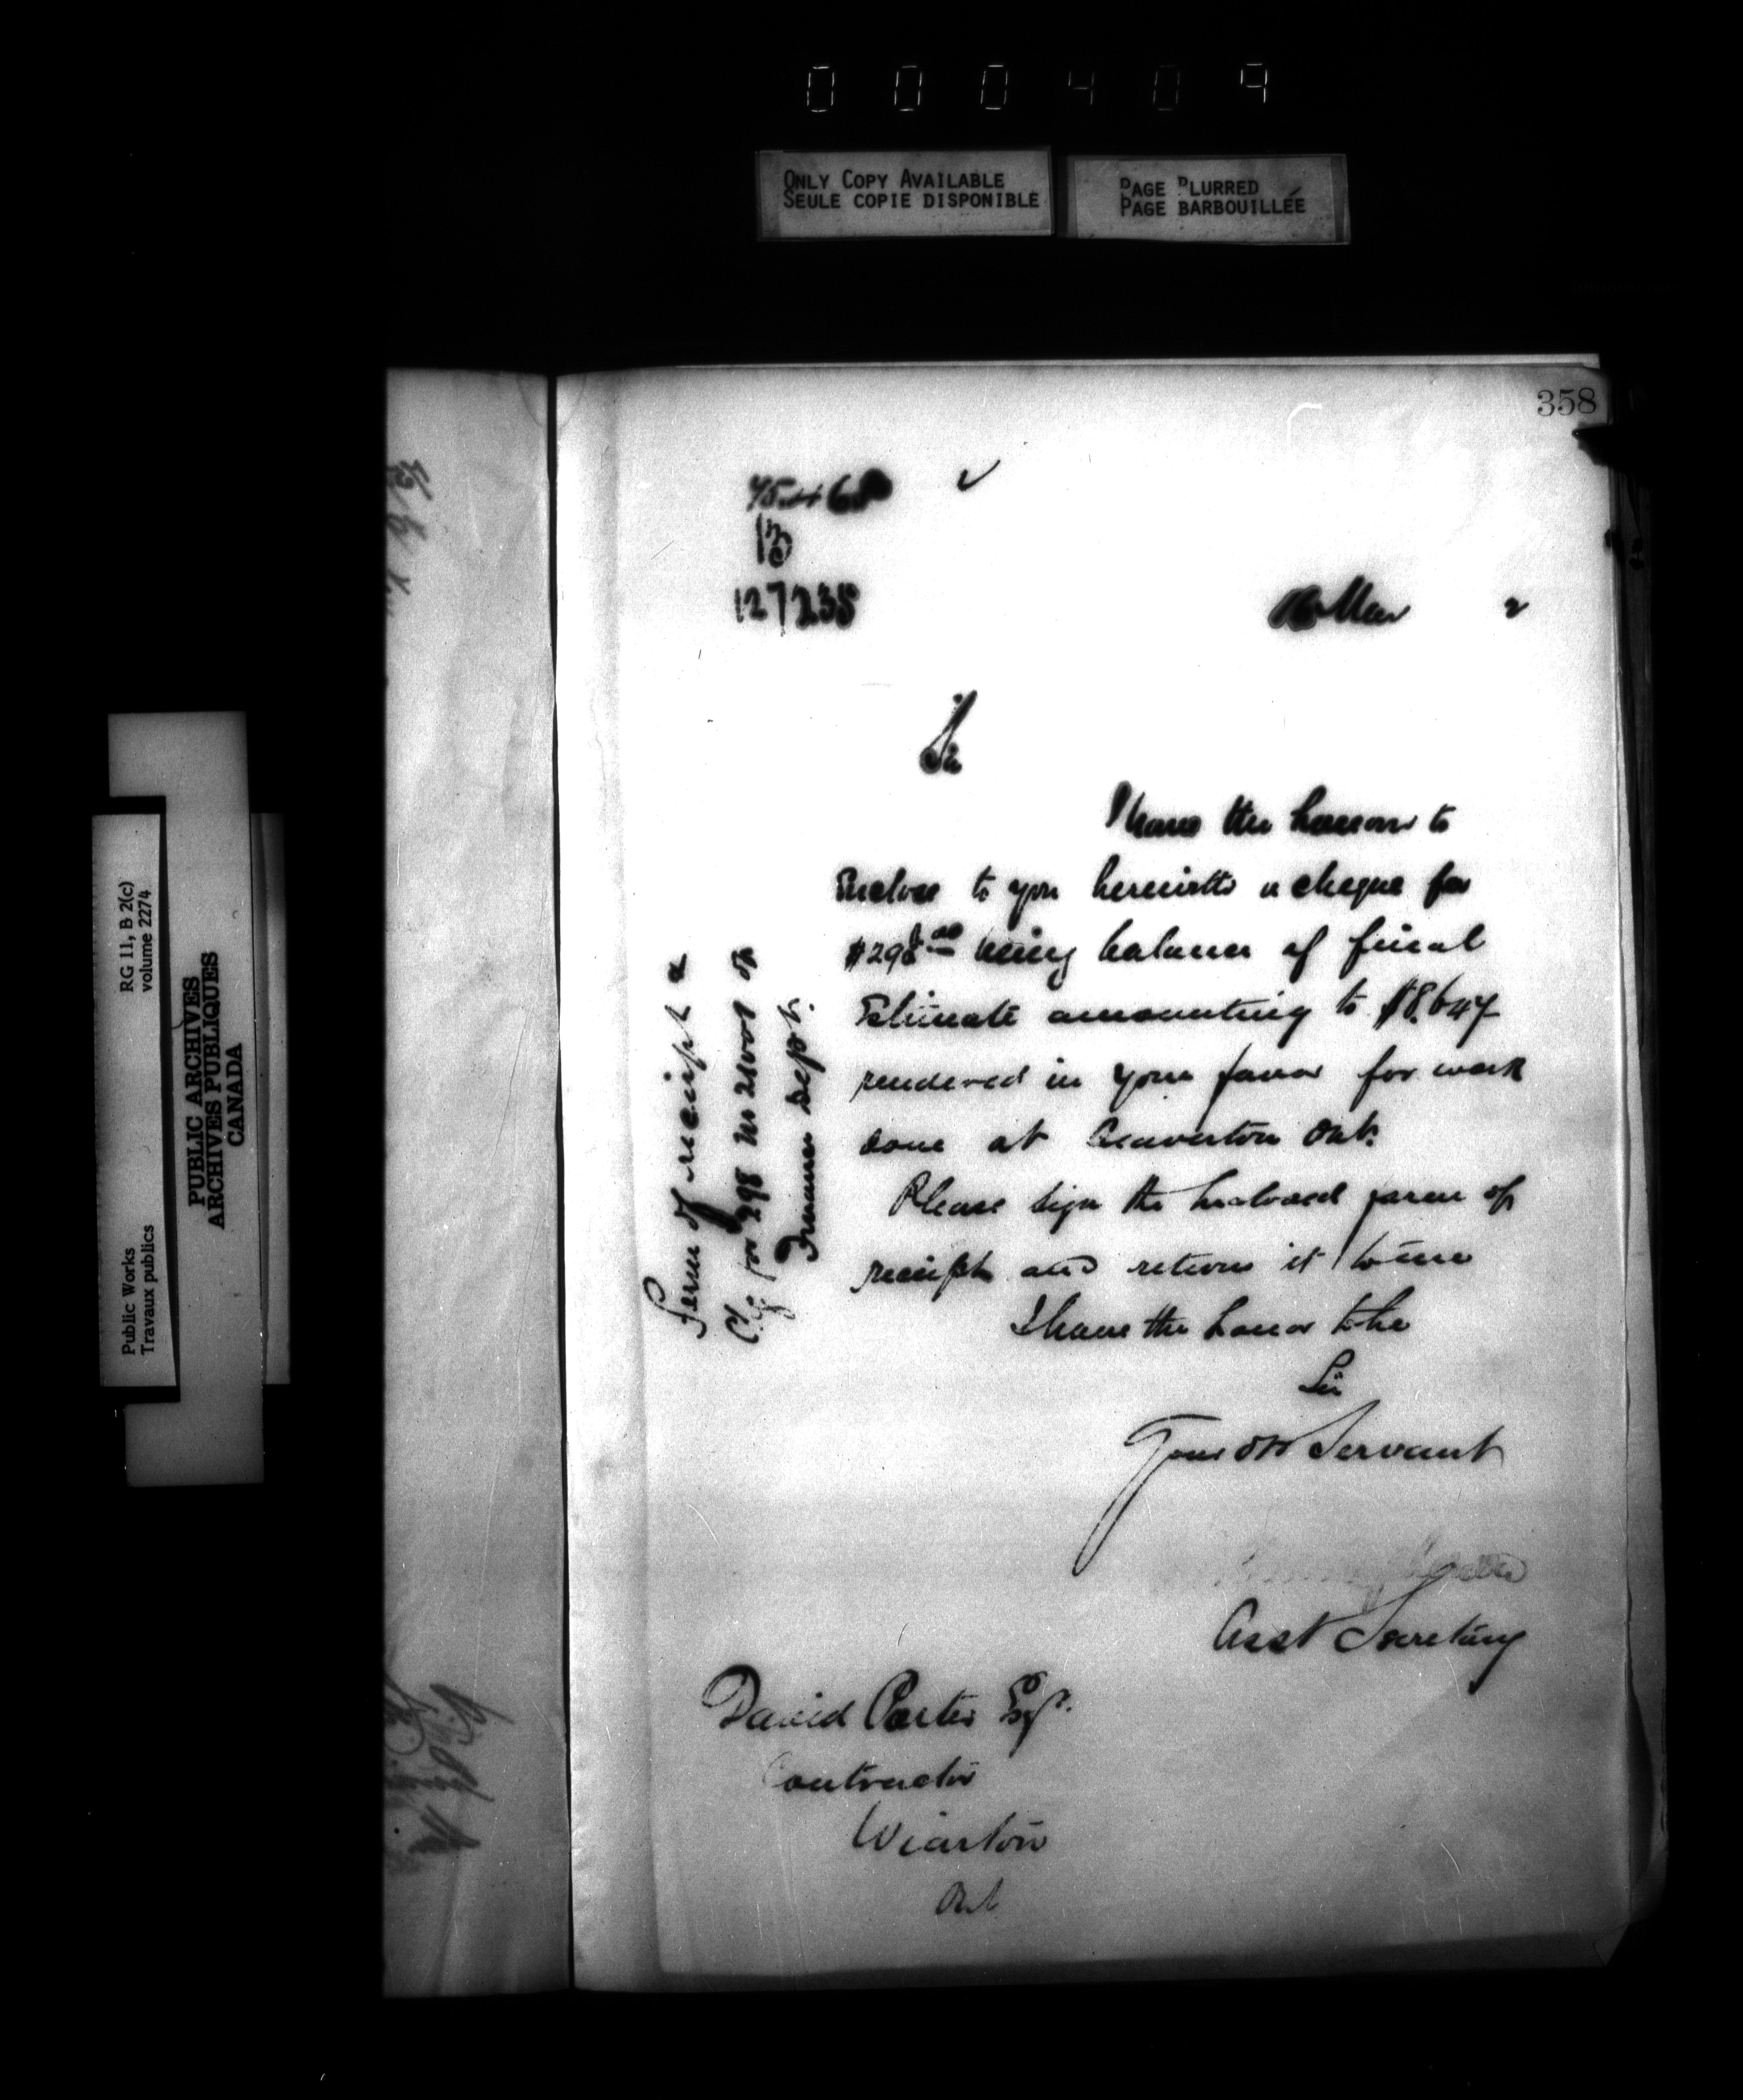 000409
ONLY COPY AVAILABLE
SEULE COPIE DISPONIBLE
PAGE BLURRED
PAGE BARBOUILLÉE
358
13
127235
Mar
2
Sir
I have the honour to
Enclose to you herewith a cheque for
$298.00 being balance of final
Estimate amounting to $8,647
rendered in your favor for work
done at Beaverton Ont.
Please sign the Enclosed form of
receipt and return it to me
I have the honor to be
Sir
Your Ob Servant
Asst Secretary
David Porter Esqr.
Contractor
Wiarton
Ont
Form of receipt &
Chq for 298 No on
Finance Dept.
Public Works
Travaux publics
RG 11, B 2(c)
volume 2274
PUBLIC ARCHIVES
ARCHIVES PUBLIQUES
CANADA